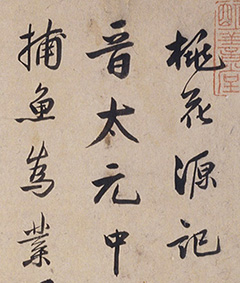 桃花源記
晉太元中
捕魚為業